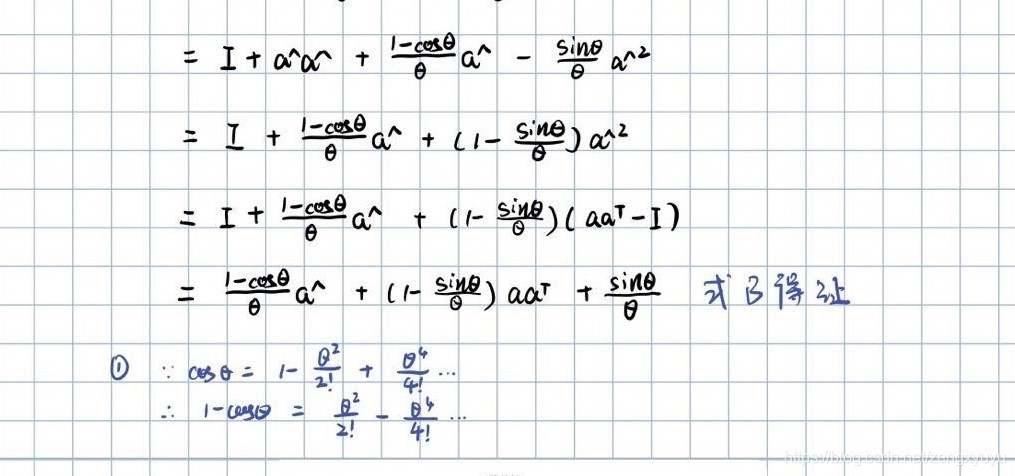 = I + a^a^ + \frac{1-cosθ}{θ} a^ - \frac{sinθ}{θ} a^2
= I + \frac{1-cosθ}{θ} a^ + (1- \frac{sinθ}{θ}) a^2
= I + \frac{1-cosθ}{θ} a^ + (1- \frac{sinθ}{θ}) (aa^T - I)
= \frac{1-cosθ}{θ} a^ + (1- \frac{sinθ}{θ}) aa^T + \frac{sinθ}{θ} 式B得证
① ∵ cosθ = 1- \frac{θ^2}{2!} + \frac{θ^4}{4!} ...
∴ 1-cosθ = \frac{θ^2}{2!} - \frac{θ^4}{4!} ...
https://blog.csdn.net/zengxyuyu